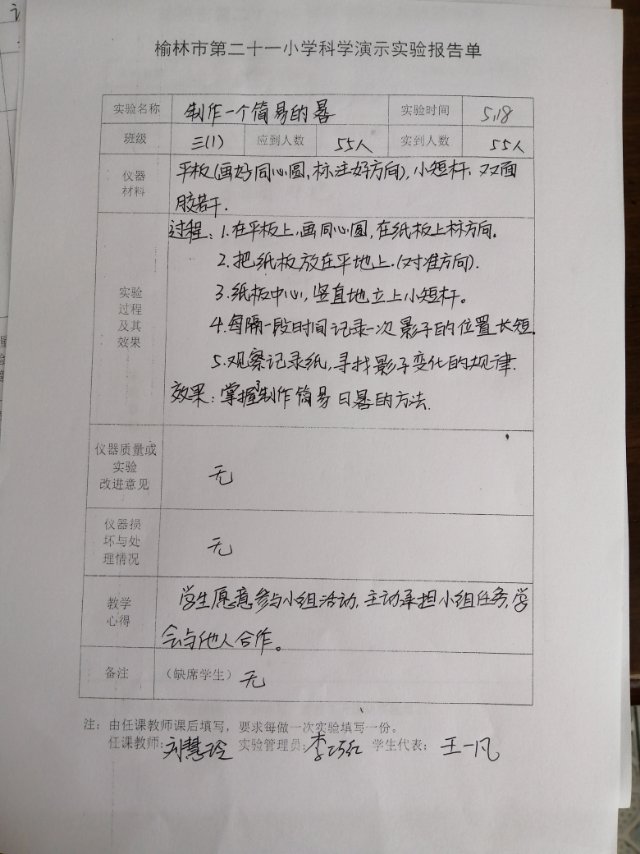 榆林市第二十一小学科学演示实验报告单
实验名称 制作一个简易的晷 实验时间 5.18
班级 三(1) 应到人数 55人 实到人数 55人
仪器材料 平板(画好同心圆,标注好方向),小短杆.双面
胶若干.
实验过程及其效果 过程:1.在平板上,画同心圆,在纸板上标方向。
2.把纸板放在平地上.(对准方向).
3.纸板中心,竖直地立上小短杆。
4.每隔一段时间记录一次影子的位置长短
5.观察记录纸,寻找影子变化的规律.
效果:掌握制作简易日晷的方法.
仪器质量或实验改进意见 无
仪器损坏与处理情况 无
教学心得 学生愿意参与小组活动,主动承担小组任务,学
会与他人合作。
备注 (缺席学生) 无
注:由任课教师课后填写,要求每做一次实验填写一份。
任课教师:刘慧玲 实验管理员:李巧红 学生代表:王一凡